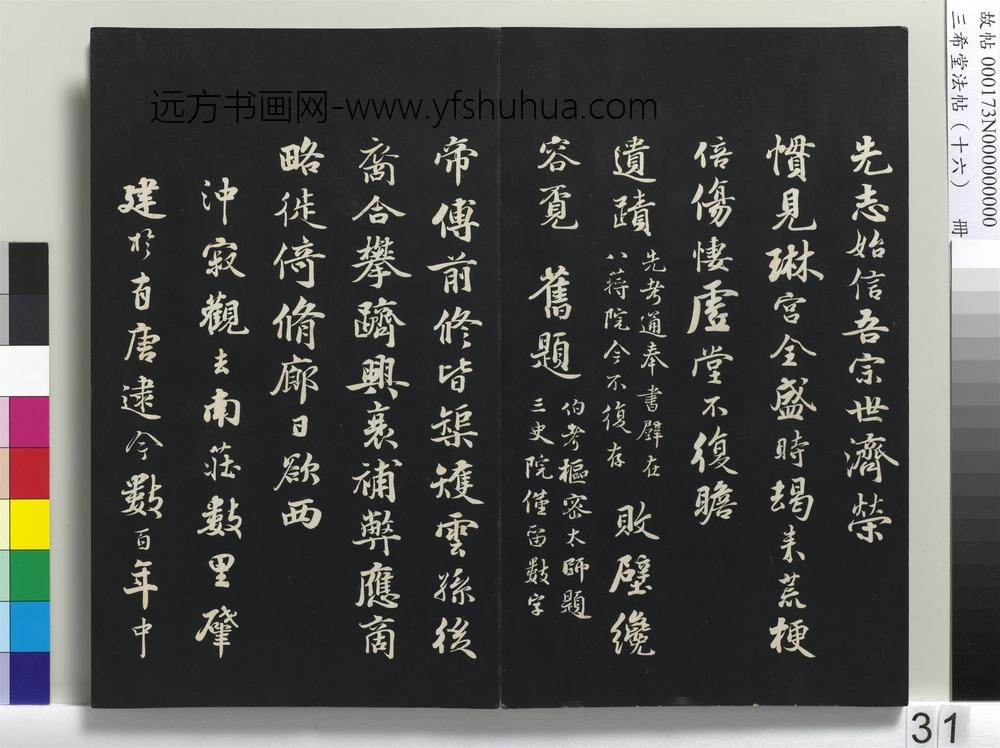 先志始信吾宗世濟榮
慣見琳宮全盛時朅来荒梗
倍傷悽虛堂不復瞻
遺蹟
先考通奉書壁在
八蒋院今不復存
敗壁纔
容覔 舊題
伯考樞密太師題
三史院僅留數字
帝傅前修皆榘矱雲孫後
裔合攀躋興衰補弊應商
略徙倚脩廊日欲西
沖寂觀去南莊數里肇
建於有唐逮今數百年中
远方书画网-www.yfshuhua.com
故帖 000173N000000000
三希堂法帖（十六） 冊
31